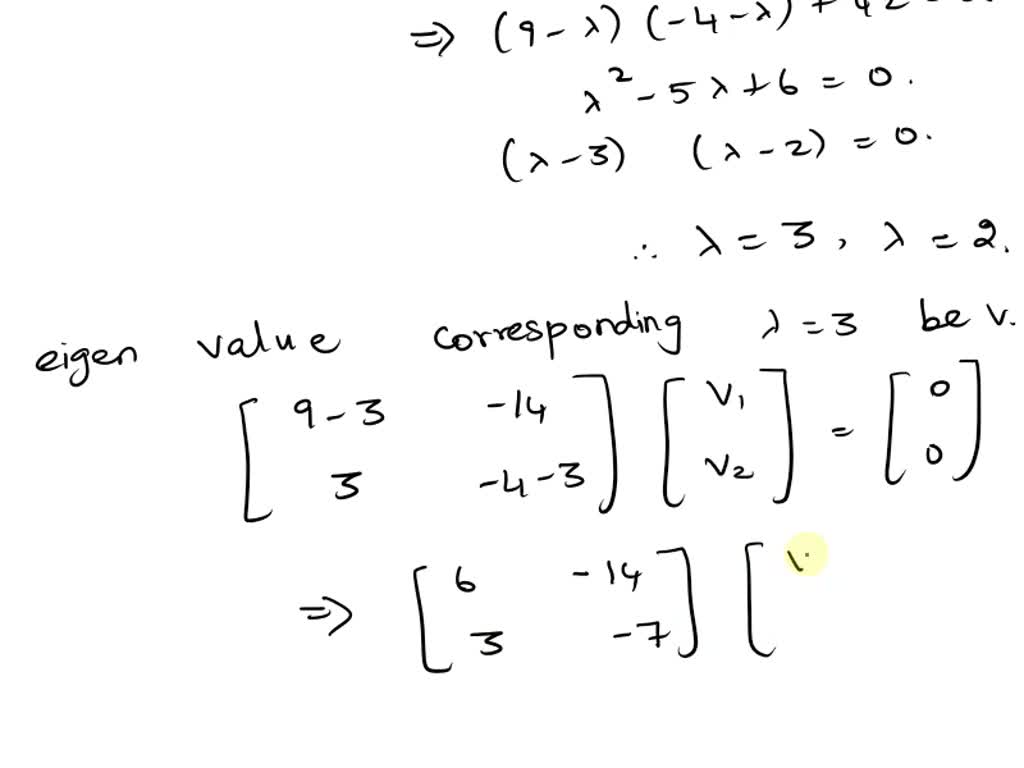 ⇒ (9 - λ) (-4 - λ) + 42
λ² - 5λ + 6 = 0.
(λ - 3) (λ - 2) = 0.
∴ λ = 3, λ = 2.
eigen value corresponding λ = 3 be v.
[ 9 - 3 -14 ] [ v₁ ] = [ 0 ]
[ 3 -4 - 3 ] [ v₂ ] [ 0 ]
⇒ [ 6 -14 ] [
[ 3 -7 ]